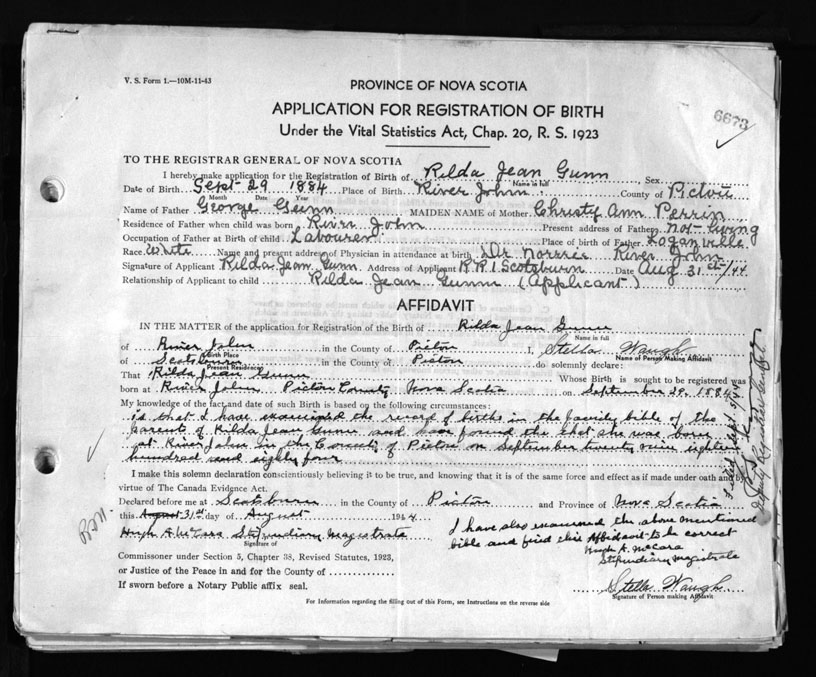 V. S. Form 1.—10M-11-43
PROVINCE OF NOVA SCOTIA
6673
APPLICATION FOR REGISTRATION OF BIRTH
Under the Vital Statistics Act, Chap. 20, R. S. 1923
TO THE REGISTRAR GENERAL OF NOVA SCOTIA
I hereby make application for the Registration of Birth of Rilda Jean Gunn Sex
Name in full
Date of Birth Sept 29 1884 Place of Birth River John County of Pictou
Month Date Year
Name of Father George Gunn MAIDEN NAME of Mother Christy Ann Perrin
Residence of Father when child was born River John Present address of Father not living
Occupation of Father at Birth of child Labourer Place of birth of Father Loganville
Race White Name and present address of Physician in attendance at birth Dr River John
Signature of Applicant Rilda Jean Gunn Address of Applicant R.R.1 Scotsburn Date Aug 31st/44
Relationship of Applicant to child Rilda Jean Gunn (Applicant)
AFFIDAVIT
IN THE MATTER of the application for Registration of the Birth of Rilda Jean Gunn
Name in full
of River John in the County of Pictou I, Stella Waugh
Birth Place Name of Person Making Affidavit
of Scotsburn in the County of Pictou do solemnly declare:
Present Residence
That Rilda Jean Gunn Whose Birth is sought to be registered was
born at River John Pictou County Nova Scotia on September 29, 1884
My knowledge of the fact and date of such Birth is based on the following circumstances:
is that I have examined the record of births in the family bible of the
parents of Rilda Jean Gunn and have found the that she was born
at River John in the County of Pictou on September twenty nine eighteen
hundred and eighty four
I make this solemn declaration conscientiously believing it to be true, and knowing that it is of the same force and effect as if made under oath and by
virtue of The Canada Evidence Act.
Declared before me at Scotsburn in the County of Pictou and Province of Nova Scotia
this August 31st day of August 1944
Hugh A McCara Stipendiary Magistrate
Signature of
I have also examined the above mentioned
bible and find this Affidavit to be correct
Hugh A. McCara
Stipendiary Magistrate
Commissioner under Section 5, Chapter 38, Revised Statutes, 1923,
or Justice of the Peace in and for the County of
If sworn before a Notary Public affix seal.
Stella Waugh
Signature of Person making Affidavit
For Information regarding the filling out of this Form, see Instructions on the reverse side